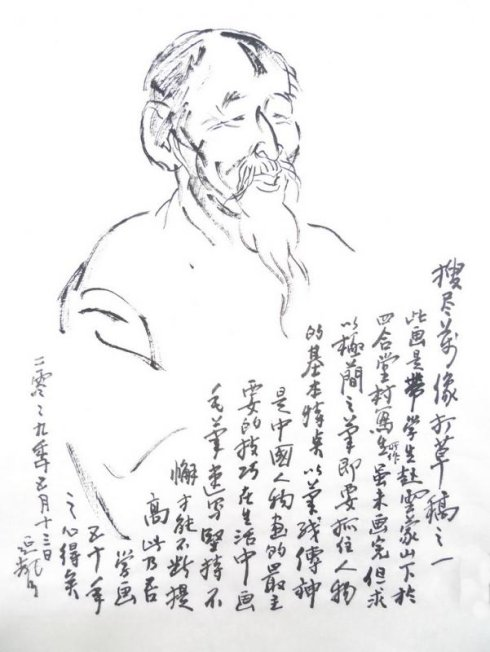 搜尽萬像打草稿之一
此画是帶学生赴雲蒙山下於
四合堂村寫生所作虽未画完但求
以極簡之筆即要抓住人物
的基本特点以筆线傳神
是中國人物画的最主
要的技巧在生活中画
毛筆速写堅持不
懈才能不断提
高此乃吾
学画
五十年
之心得矣
二零〻九年五月十三日